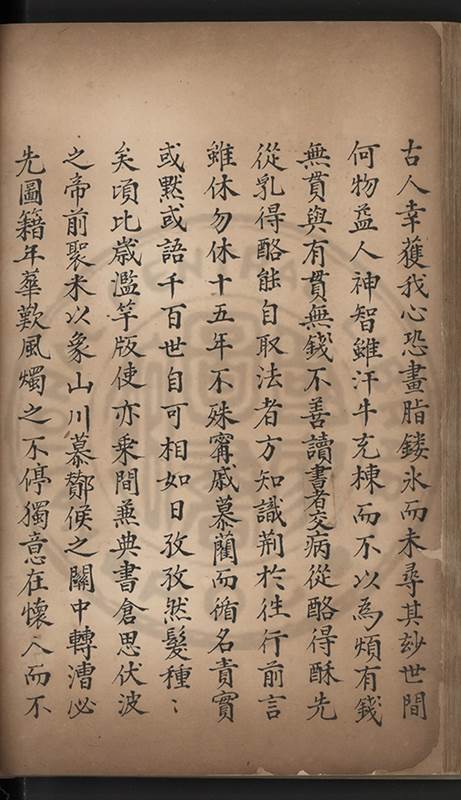 古人幸蒦我心恐畫脂鏤氷而未尋其玅世間
何物益人神智雖汗牛充棟而不以為煩有錢
無貫與有貫無錢不善讀書者交病從酪得酥先
從乳得酪能自取法者方知識荆扵徃行前言
雖休勿休十五年不殊甯戚慕藺而循名責實
或黙或語千百世自可相如日孜孜然髮種〻
矣頃比歲濫竽版使亦乘間兼典書倉思伏波
之帝前聚米以象山川慕酇候之關中轉漕必
先圖籍年華歎風燭之不停獨意在懷人而不